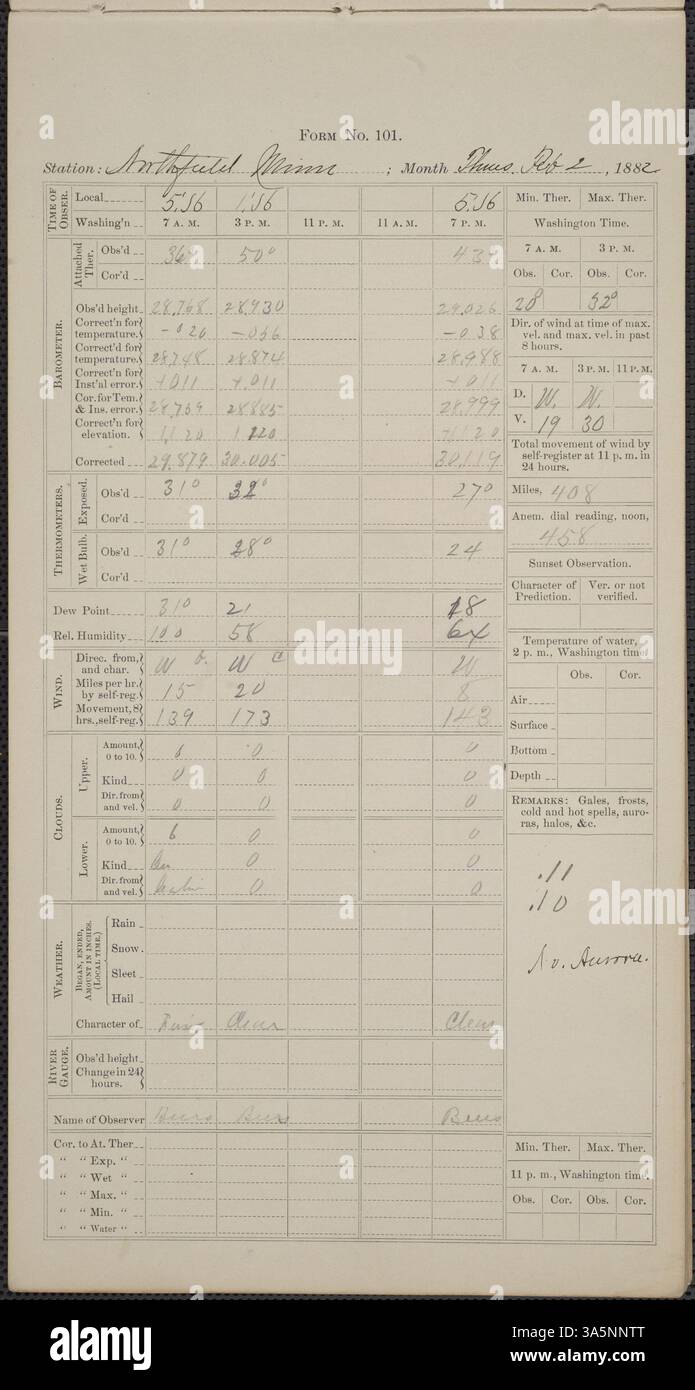 Form No. 101.
Station: Northfield Minn ; Month Thurs. Feb 2, 1882
TIME OF OBSER.
Local 5:56 1:56 5:56
Washing'n 7 A. M. 3 P. M. 11 P. M. 11 A. M. 7 P. M.
Min. Ther. Max. Ther.
Washington Time.
7 A. M. 3 P. M.
Obs. Cor. Obs. Cor.
28 32°
BAROMETER.
Attached Ther.
Obs'd 36° 50° 43°
Cor'd
Obs'd height 28.768 28.930 29.026
Correct'n for temperature. -020 -056 -038
Correct'd for temperature. 28.748 28.874 28.988
Correct'n for Inst'al error. +011 +.011 +011
Cor. for Tem. & Ins. error. 28.759 28.885 28.999
Correct'n for elevation. 1,120 1 120 +1120
Corrected 29.879 30.005 30.119
Dir. of wind at time of max. vel. and max. vel. in past 8 hours.
7 A. M. 3 P. M. 11 P. M.
D. W. W.
V. 19 30
Total movement of wind by self-register at 11 p. m. in 24 hours.
Miles, 408
Anem. dial reading, noon,
458
THERMOMETERS.
Exposed.
Obs'd 31° 32° 27°
Cor'd
Wet Bulb.
Obs'd 31° 28° 24
Cor'd
Dew Point 31° 21 18
Rel. Humidity 100 58 64
Sunset Observation.
Character of Prediction. Ver. or not verified.
Temperature of water, 2 p. m., Washington time.
Obs. Cor.
Air
Surface
Bottom
Depth
WIND.
Direc. from, and char. W W W
Miles per hr. by self-reg. 15 20 8
Movement, 8 hrs., self-reg. 139 173 143
CLOUDS.
Upper.
Amount, 0 to 10. 0 0
Kind 0 0 0
Dir. from and vel. 0 0 0
Lower.
Amount, 0 to 10. 6 0 0
Kind 0 0
Dir. from and vel. 0 0
REMARKS: Gales, frosts, cold and hot spells, auroras, halos, &c.
.11
.10
No. Aurora.
WEATHER.
BEGAN, ENDED, AMOUNT IN INCHES. (LOCAL TIME.)
Rain
Snow
Sleet
Hail
Character of Clear Clear
RIVER GAUGE.
Obs'd height
Change in 24 hours.
Name of Observer
Cor. to At. Ther
" " Exp. "
" " Wet "
" " Max. "
" " Min. "
" " Water "
Min. Ther. Max. Ther.
11 p. m., Washington time.
Obs. Cor. Obs. Cor.
alamy
Image ID: 3A5NNTT
www.alamy.com